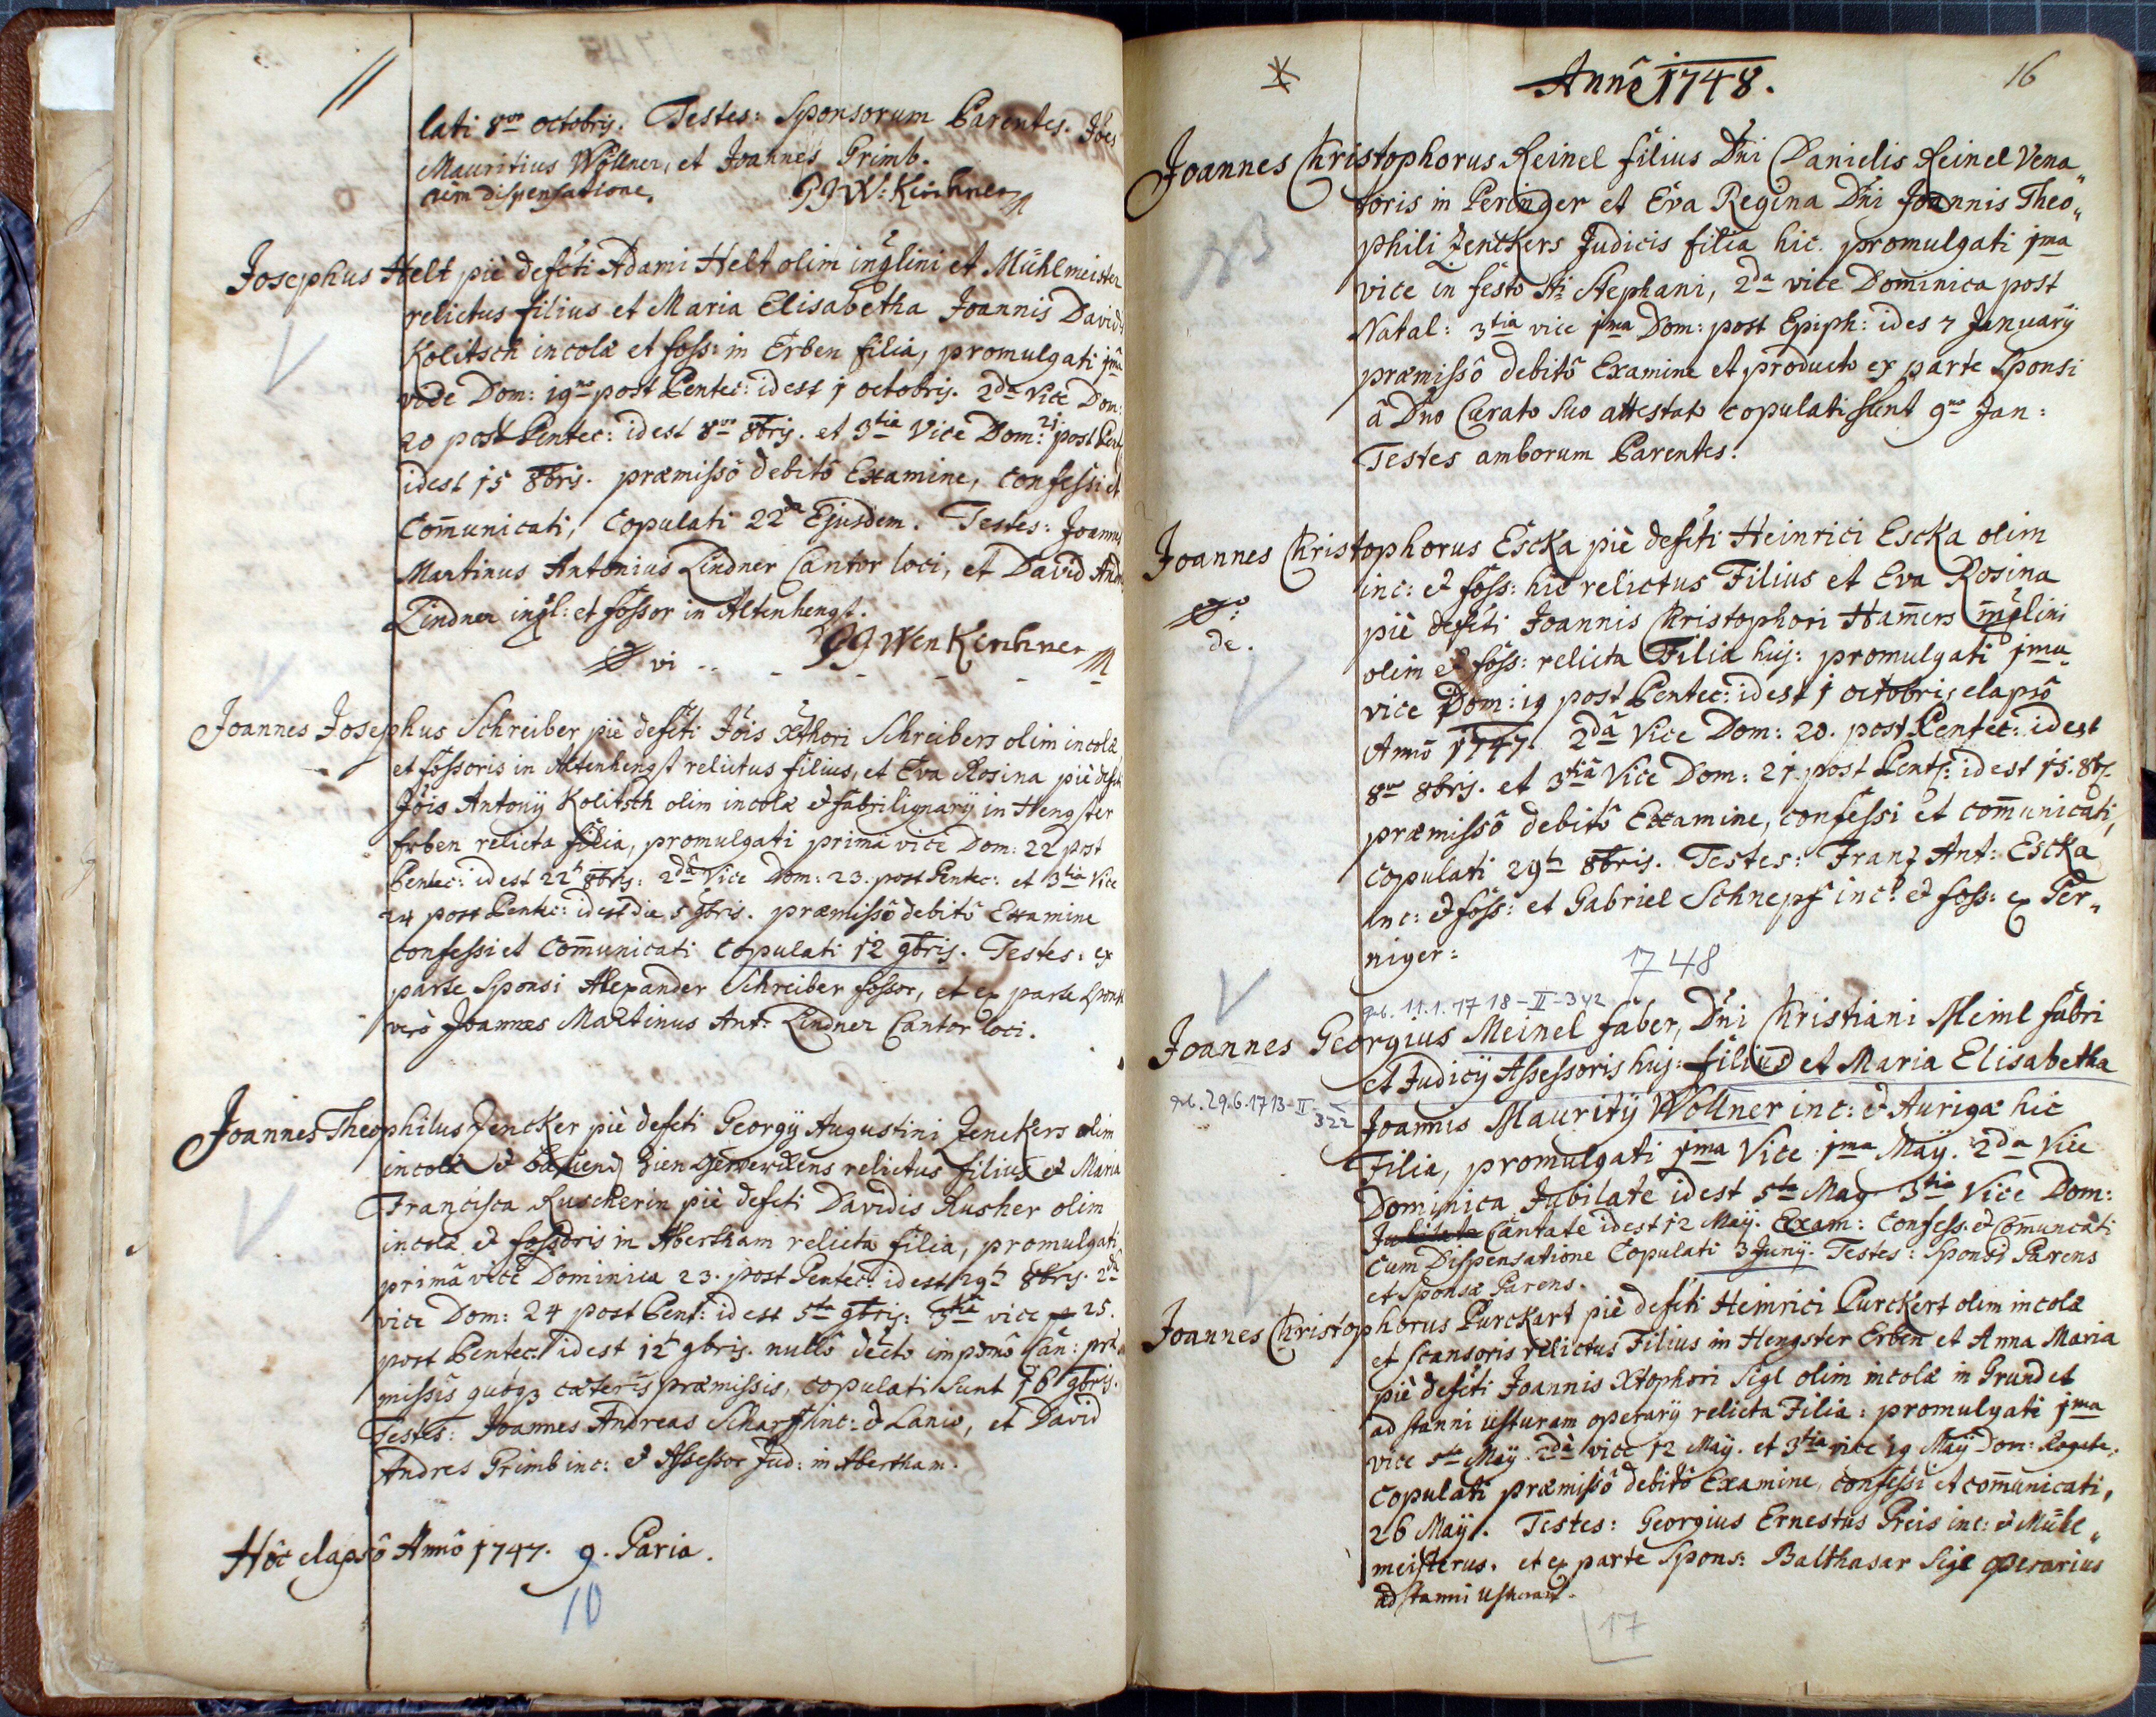 lati 8vo octobrij. Testes: Sponsorum Parentes. Jões
Mauritius Wöllner, et Joannes Grimb.
cum dispensatione. PJW: Kirchner
Josephus Helt piè defcti Adami Helt olim inqlini et Mühlmeister
relictus filius et Maria Elisabetha Joannis Davidis
Kolitsch incolæ et foss: in Erben filia, promulgati jma
vice Dom: 19no post Pentec: idest 1 octobrij. 2da Vice Dom:
20 post Pentec: idest 8vo 8brij. et 3tia Vice Dom: 21 post Pent
idest 15 8bris. præmissô debitô Examine, confessi et
Com̄unicati, Copulati 22da Ejusdem. Testes: Joannes
Martinus Antonius Lindner Cantor loci, et David And
Lindner inql: et fossor in Altenhengst.
PJ Wen Kirchner
vi
Joannes Josephus Schreiber piè defcti Jõis Xthori Schreibers olim incolæ
et fossoris in Altenhengst relictus filius, et Eva Rosina piè defcti
Jõis Antonÿ Kolitsch olim incolæ et fabri lignarÿ in Hengster
Erben relicta filia, promulgati primâ vice Dom: 22 post
Pentec: idest 22t 8bris: 2da Vice Dom: 23. post Pentec: et 3tia Vice
24 post Pentec: idest die 5 9bris. præmissô debitô Examine
confessi et Com̄unicati Copulati 12 9bris. Testes: ex
parte Sponsi Alexander Schreiber fossor, et ex parte Sponsæ
verò Joannes Martinus Ant: Lindner Cantor loci.
Joannes Theophilus Zencker piè defcti Georgÿ Augustini Zenckers olim
incolæ et relictus filius et Maria
Francisca Ruscherin piè defcti Davidis Rusher olim
incolæ et fossoris in Abertham relicta filia, promulgati
primâ vice Dominica 23. post Pentec: idest 29t 8bris. 2da
vice Dom: 24 post Pent: idest 5ta 9bris: 3tia vice 25.
post Pentec. idest 12t 9bris. nullô detecto imp̃mô Can: præ
missis quoqȝ cæteris præmissis, copulati sunt 16 9bris.
Testes: Joannes Andreas Scharff inc: et Lanio, et David
Andres Grimb inc: et Assessor Jud: in Abertham.
Hôc elapsô Annô 1747. 9. Paria.
10
Annô 1748.
16
Joannes Christophorus Reinel filius Dñi Danielis Reinel Vena„
toris in Peringer et Eva Regina Dñi Joannis Theo„
phili Zenckers Judicis filia hic. promulgati jma
vice in festo Sti Stephani, 2da vice Dominica post
Natal: 3tia vice jma Dom: post Epiph: ides 7 Januarÿ
præmissô debitô Examine et producto ex parte Sponsi
â Dno Curato suo attestato copulati sunt 9no Jan:
Testes amborum Parentes.
Joannes Christophorus Escka piè defcti Heinrici Escka olim
inc: et foss: hic relictus Filius et Eva Rosina
piè defcti Joannis Christophori Ham̄ers inqlini
de.
olim et foss: relicta Filia huj: promulgati jma
vice Dom: 19 post Pentec: idest 1 octobris elapsô
Annô 1747. 2dâ Vice Dom: 20. post Pentec: idest
8vo 8brj. et 3tiâ Vice Dom: 21. post Pent: idest 15. 8br.
præmissô debitô Examine, confessi et com̄unicati,
copulati 29t 8bris. Testes: Franz Ant: Escka
inc: et foss: et Gabriel Schnepf inc: et foss: ex Per„
niger:
1748
geb. 11.1.1718-II-342
Joannes Georgius Meinel faber, Dñi Christiani Meinl fabri
et Judicÿ Assessoris huj: filius et Maria Elisabetha
geb. 29.6.1713-II-322
Joannis Mauritÿ Wöllner inc: et Aurigæ hic
Filia, promulgati jma Vice jma Maÿ. 2da Vice
Dominica Jubilate idest 5ta Maÿ 3tia Vice Dom:
Jubilate Cantate idest 12 Maÿ. Exam: Confess: et Com̄uncati
Cum Dispensatione Copulati 3 Junÿ. Testes: Sponsi Parens
et Sponsæ Parens.
Joannes Christophorus Purckart piè defcti Heinrici Purckert olim incolæ
et scansoris relictus Filius in Hengster Erben et Anna Maria
piè defcti Joannis Xtophori Sigl olim incolæ in Grund et
ad stanni usturam operarÿ relicta Filia: promulgati jma
vice 5ta Maÿ. 2da vice 12 Maÿ. et 3tia vice 19 Maÿ Dom: Rogate.
Copulati præmissô debitô Examine, confessi et com̄unicati,
26 Maÿ. Testes: Georgius Ernestus Preis inc: et Mühl„
meisterus. et ex parte Spons: Balthasar Sigl operarius
ad stanni usturam.
17